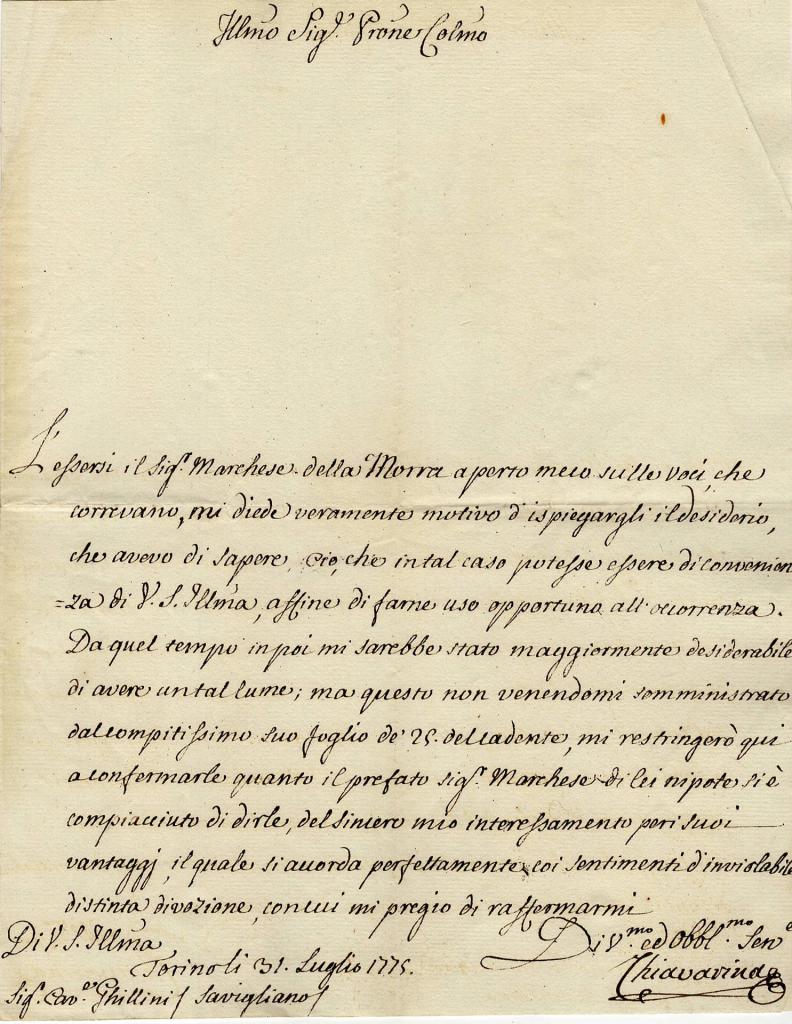 Illmo Sigr. Prone Colmo
L'essersi il Sigr. Marchese della Morra aperto meco sulle voci, che
correvano, mi diede veramente motivo d'ispiegargli il desiderio,
che avevo di sapere, ciò, che in tal caso potesse essere di convenien
=za di V. S. Illma, affine di farne uso opportuno all'occorrenza.
Da quel tempo in poi mi sarebbe stato maggiormente desiderabile
di avere un tal lume; ma questo non venendomi somministrato
dal compitissimo suo foglio de' 25. del cadente, mi restringerò qui
a confermarle quanto il prefato Sigr. Marchese di lei nipote si è
compiacciuto di dirle, del sincero mio interessamento per i suoi
vantaggj, il quale si accorda perfettamente coi sentimenti d'inviolabile
distinta divozione, con cui mi pregio di raffermarmi
Di V. S. Illma
Divmo ed Obblmo Serve
Torino li 31. Luglio 1775.
Chiavarina
Sigr. Cavre Ghillini / Savigliano /